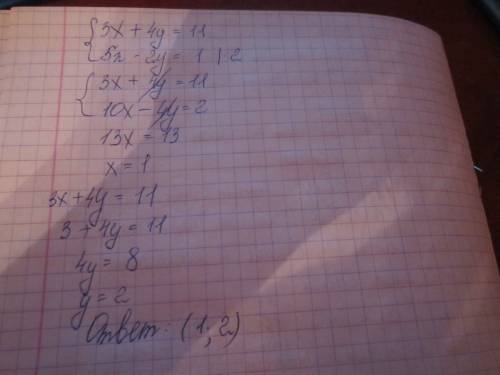 {3x + 4y = 11
5x - 2y = 1 | 2
{3x + 4y = 11
10x - 4y = 2
13x = 13
x = 1
3x + 4y = 11
3 + 4y = 11
4y = 8
y = 2
Ответ: (1; 2)